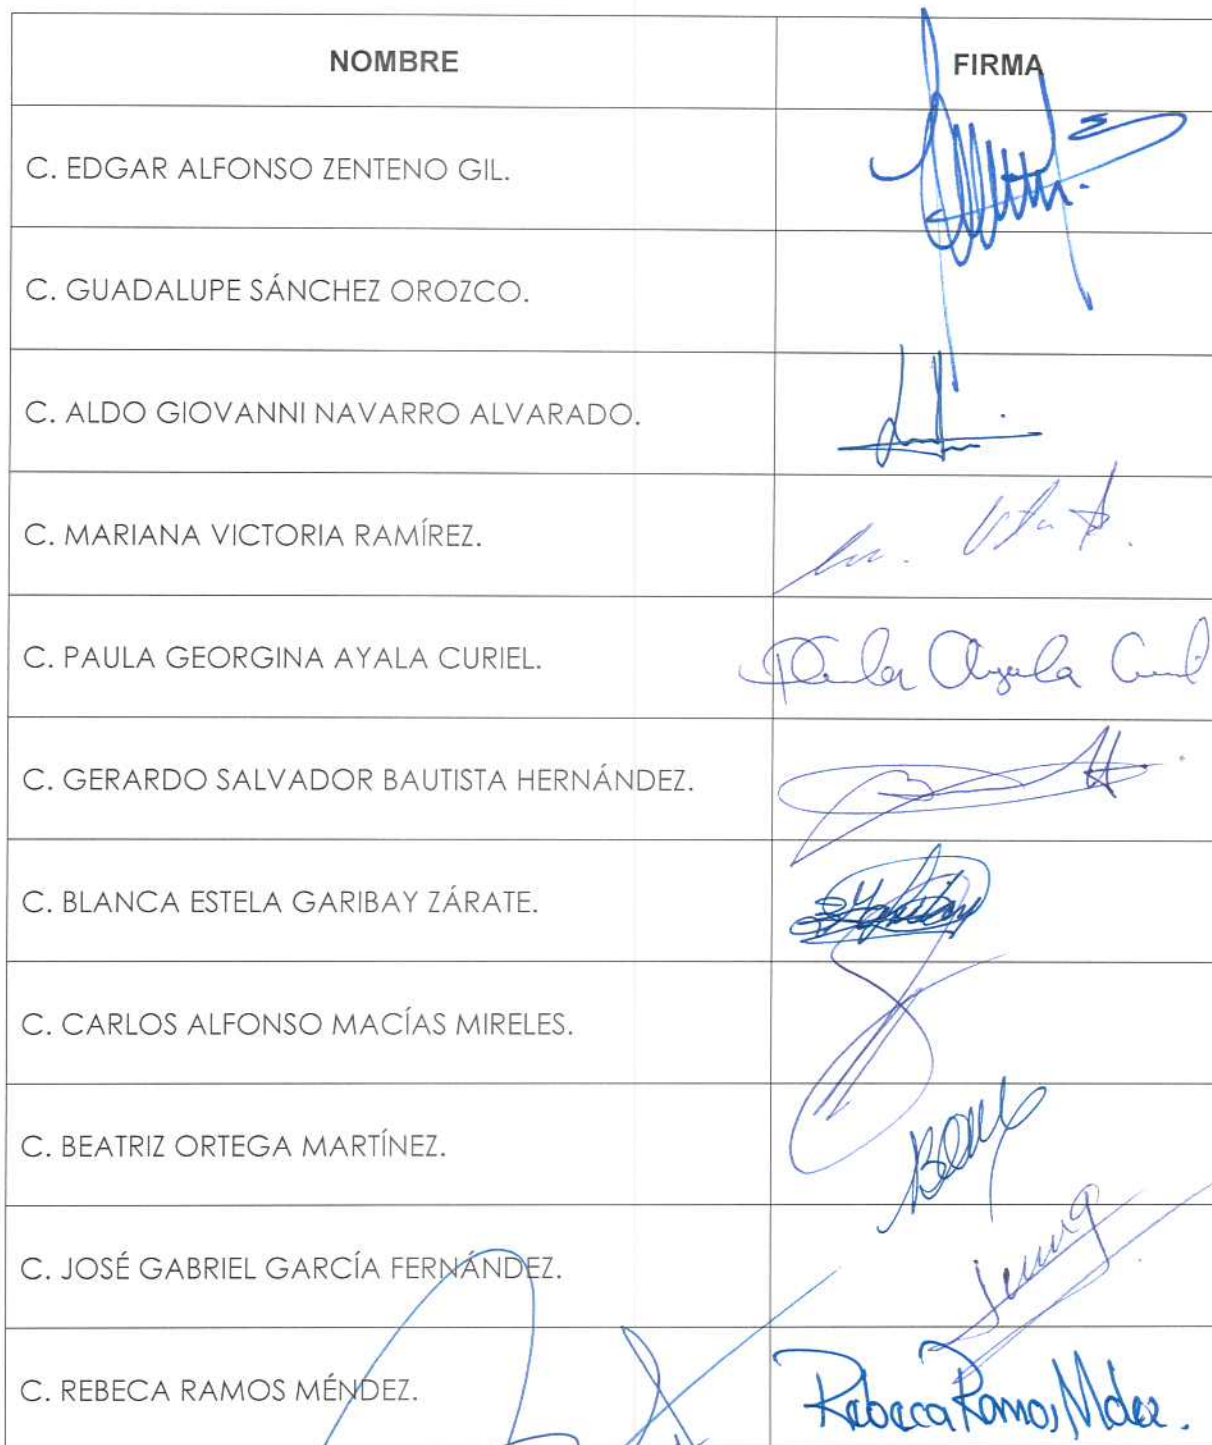 NOMBRE FIRMA
C. EDGAR ALFONSO ZENTENO GIL.
C. GUADALUPE SÁNCHEZ OROZCO.
C. ALDO GIOVANNI NAVARRO ALVARADO.
C. MARIANA VICTORIA RAMÍREZ.
C. PAULA GEORGINA AYALA CURIEL. Paula Ayala
C. GERARDO SALVADOR BAUTISTA HERNÁNDEZ.
C. BLANCA ESTELA GARIBAY ZÁRATE.
C. CARLOS ALFONSO MACÍAS MIRELES.
C. BEATRIZ ORTEGA MARTÍNEZ.
C. JOSÉ GABRIEL GARCÍA FERNÁNDEZ.
C. REBECA RAMOS MÉNDEZ. Rebeca Ramos Mdez.